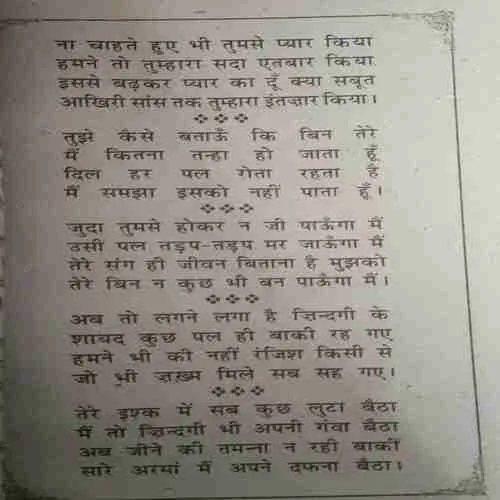 ना चाहते हुए भी तुमसे प्यार किया
हमने तो तुम्हारा सदा एतबार किया
इससे बढ़कर प्यार का दूँ क्या सबूत
आखिरी सांस तक तुम्हारा इंतज़ार किया।
तुझे कैसे बताऊँ कि बिन तेरे
मैं कितना तन्हा हो जाता हूँ
दिल हर पल रोता रहता है
मैं समझा इसको नहीं पाता हूँ।
जुदा तुमसे होकर न जी पाऊँगा मैं
उसी पल तड़प-तड़प मर जाऊँगा मैं
तेरे संग ही जीवन बिताना है मुझको
तेरे बिन न कुछ भी बन पाऊँगा मैं।
अब तो लगने लगा है ज़िन्दगी के
शायद कुछ पल ही बाकी रह गए
हमने भी की नहीं रंजिश किसी से
जो भी ज़ख़्म मिले सब सह गए।
तेरे इश्क में सब कुछ लुटा बैठा
मैं तो ज़िन्दगी भी अपनी गंवा बैठा
अब जीने की तमन्ना न रही बाकी
सारे अरमां मैं अपने दफना बैठा।